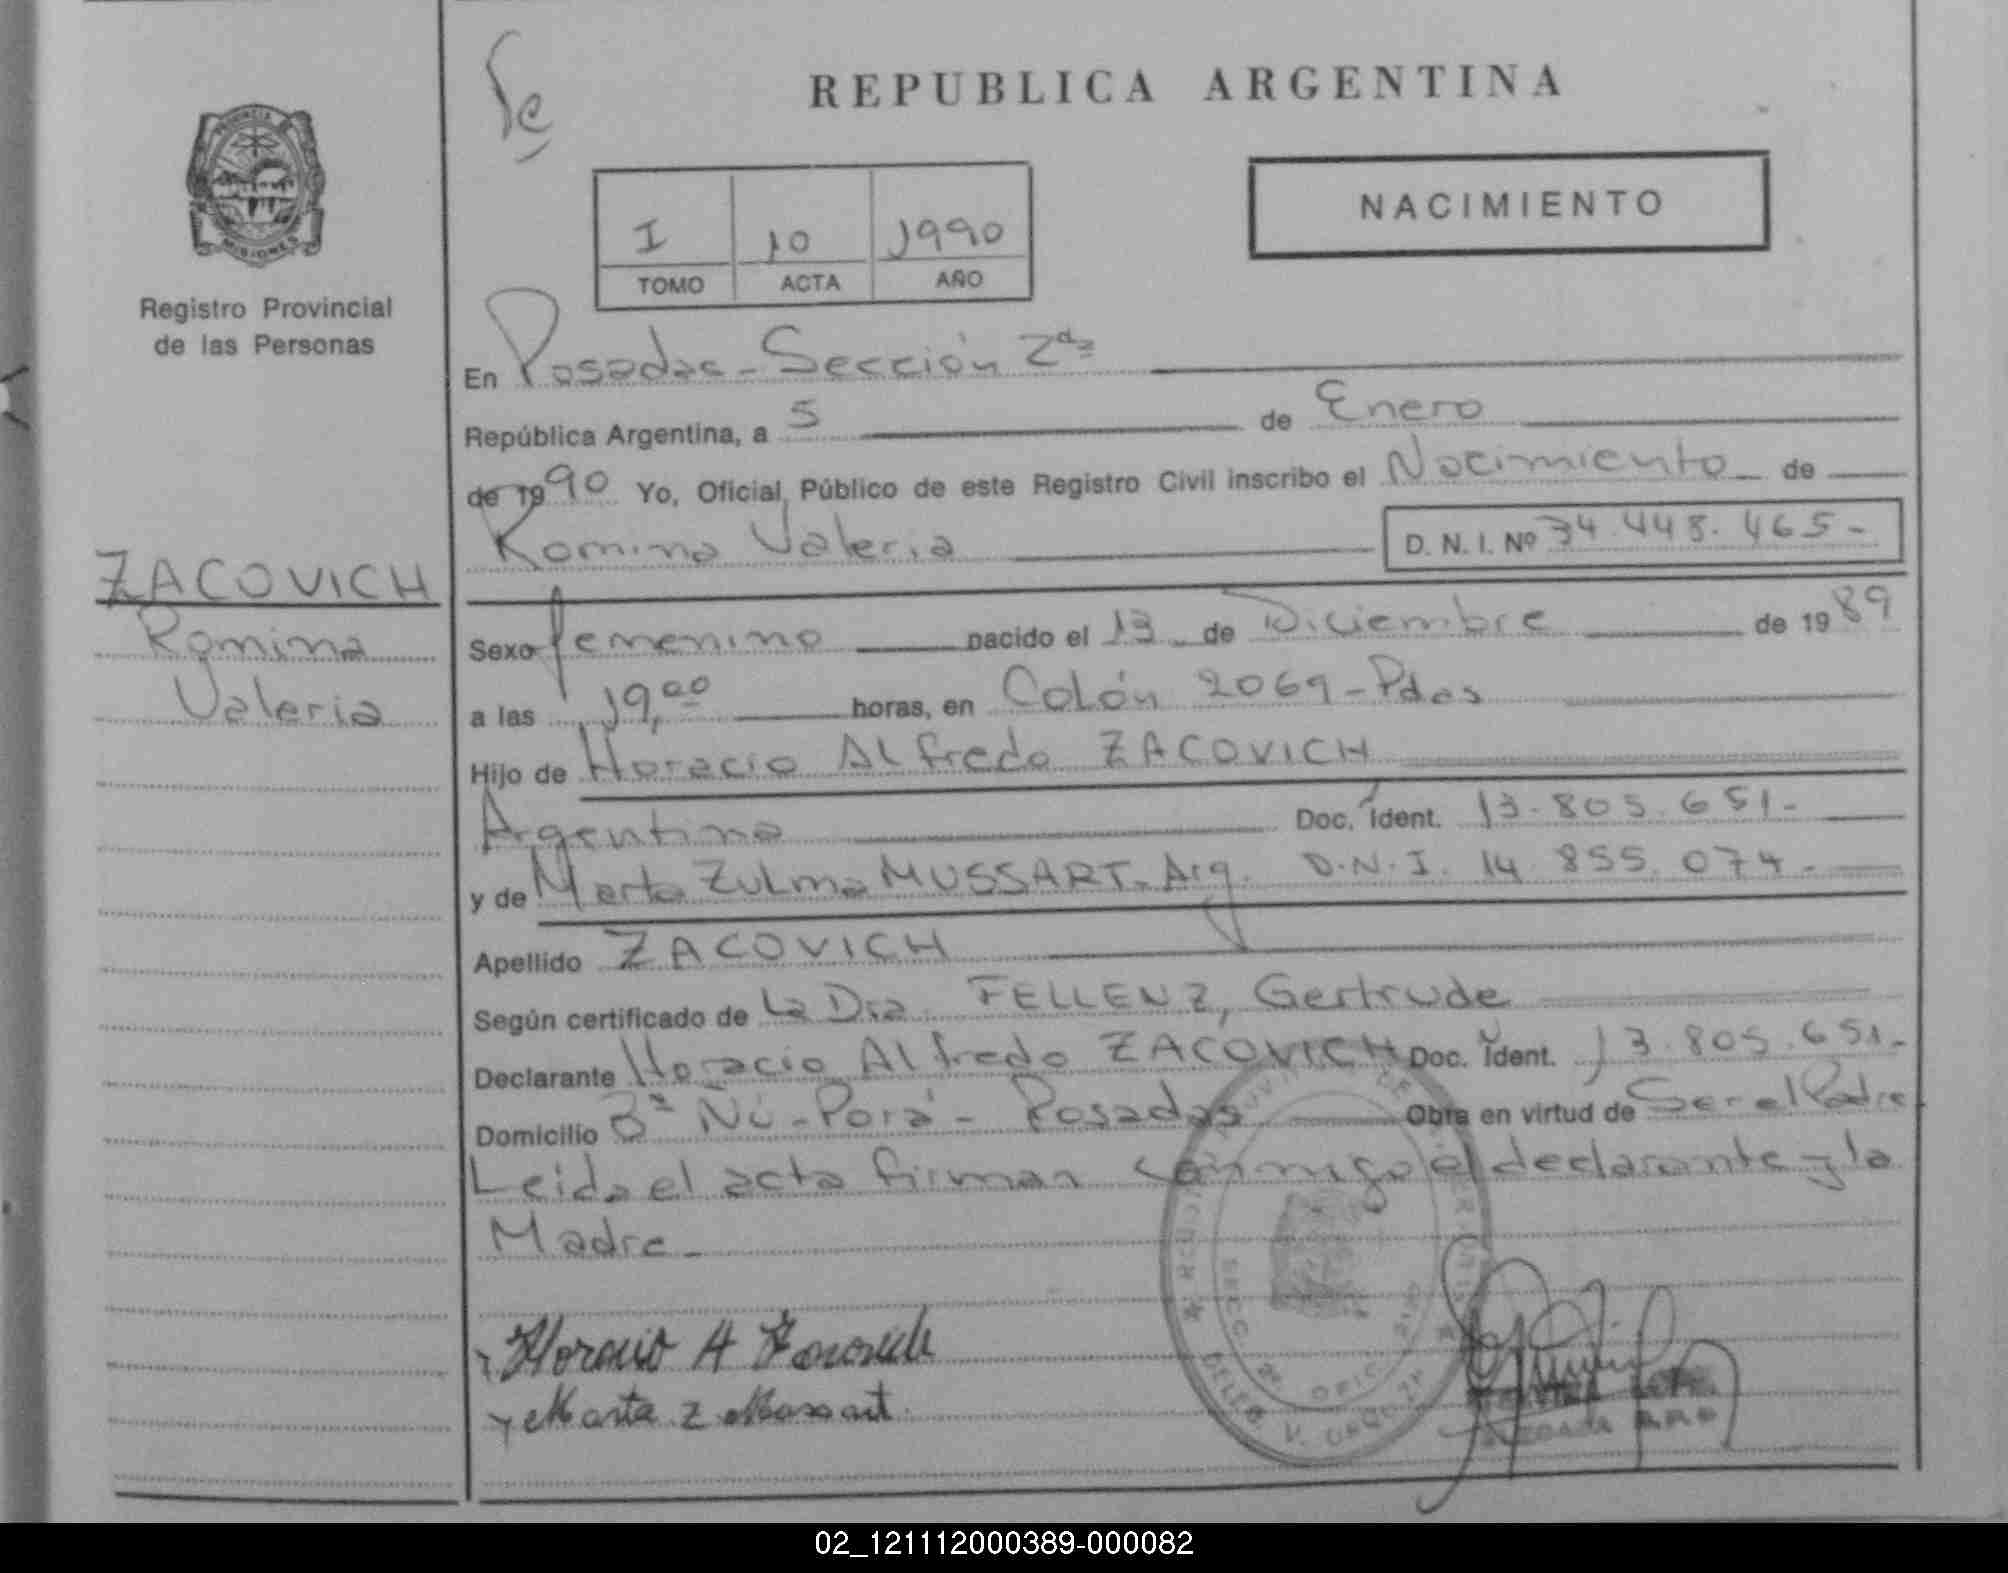 REPUBLICA ARGENTINA
NACIMIENTO
I 10 1990
TOMO ACTA AÑO
PROVINCIA DE
MISIONES
Registro Provincial
de las Personas
ZACOVICH
Romina
Valeria
En Posadas - Sección 2da
República Argentina, a 5 de Enero
de 1990 Yo, Oficial Público de este Registro Civil inscribo el Nacimiento de
Romina Valeria D. N. I. Nº 34.448.465-
Sexo femenino nacido el 13 de Diciembre de 1989
a las 19,00 horas, en Colón 2069 - Pdas
Hijo de Horacio Alfredo ZACOVICH
Argentino Doc. Ident. 13.805.651-
y de Marta Zulma MUSSART. Arg. D.N.I. 14.855.074-
Apellido ZACOVICH
Según certificado de La Dra. FELLENZ, Gertrude
Declarante Horacio Alfredo ZACOVICH Doc. Ident. 13.805.651-
Domicilio Bº Ñú-Porá - Posadas Obra en virtud de Ser el Padre
Leida el acta firman conmigo el declarante y la
Madre -
Horacio A Zacovich
Marta Z Mussart
SECC. 2ª OFIC.
DELEG. V. URQUIZA
02_121112000389-000082